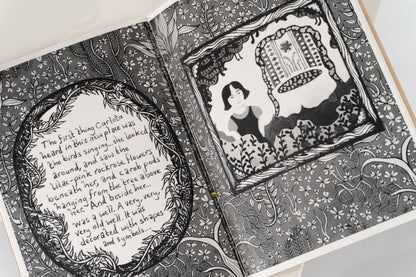 The first thing Carlota
heard in this new place was
the birds singing. She looked
around, and saw the
lilac-pink rockrose flowers
beneath her, and carob pods
hanging from the tree above
her. And beside her...
was a well. A very, very
very old well. It was
decorated with shapes
and symbols...